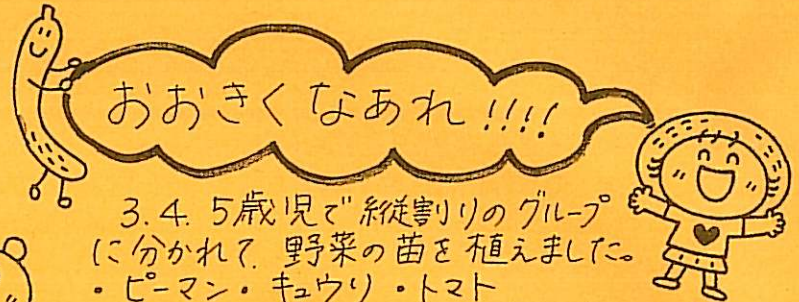 おおきくなあれ!!!!
3.4.5歳児で縦割りのグループ
に分かれて、野菜の苗を植えました。
・ピーマン・キュウリ・トマト